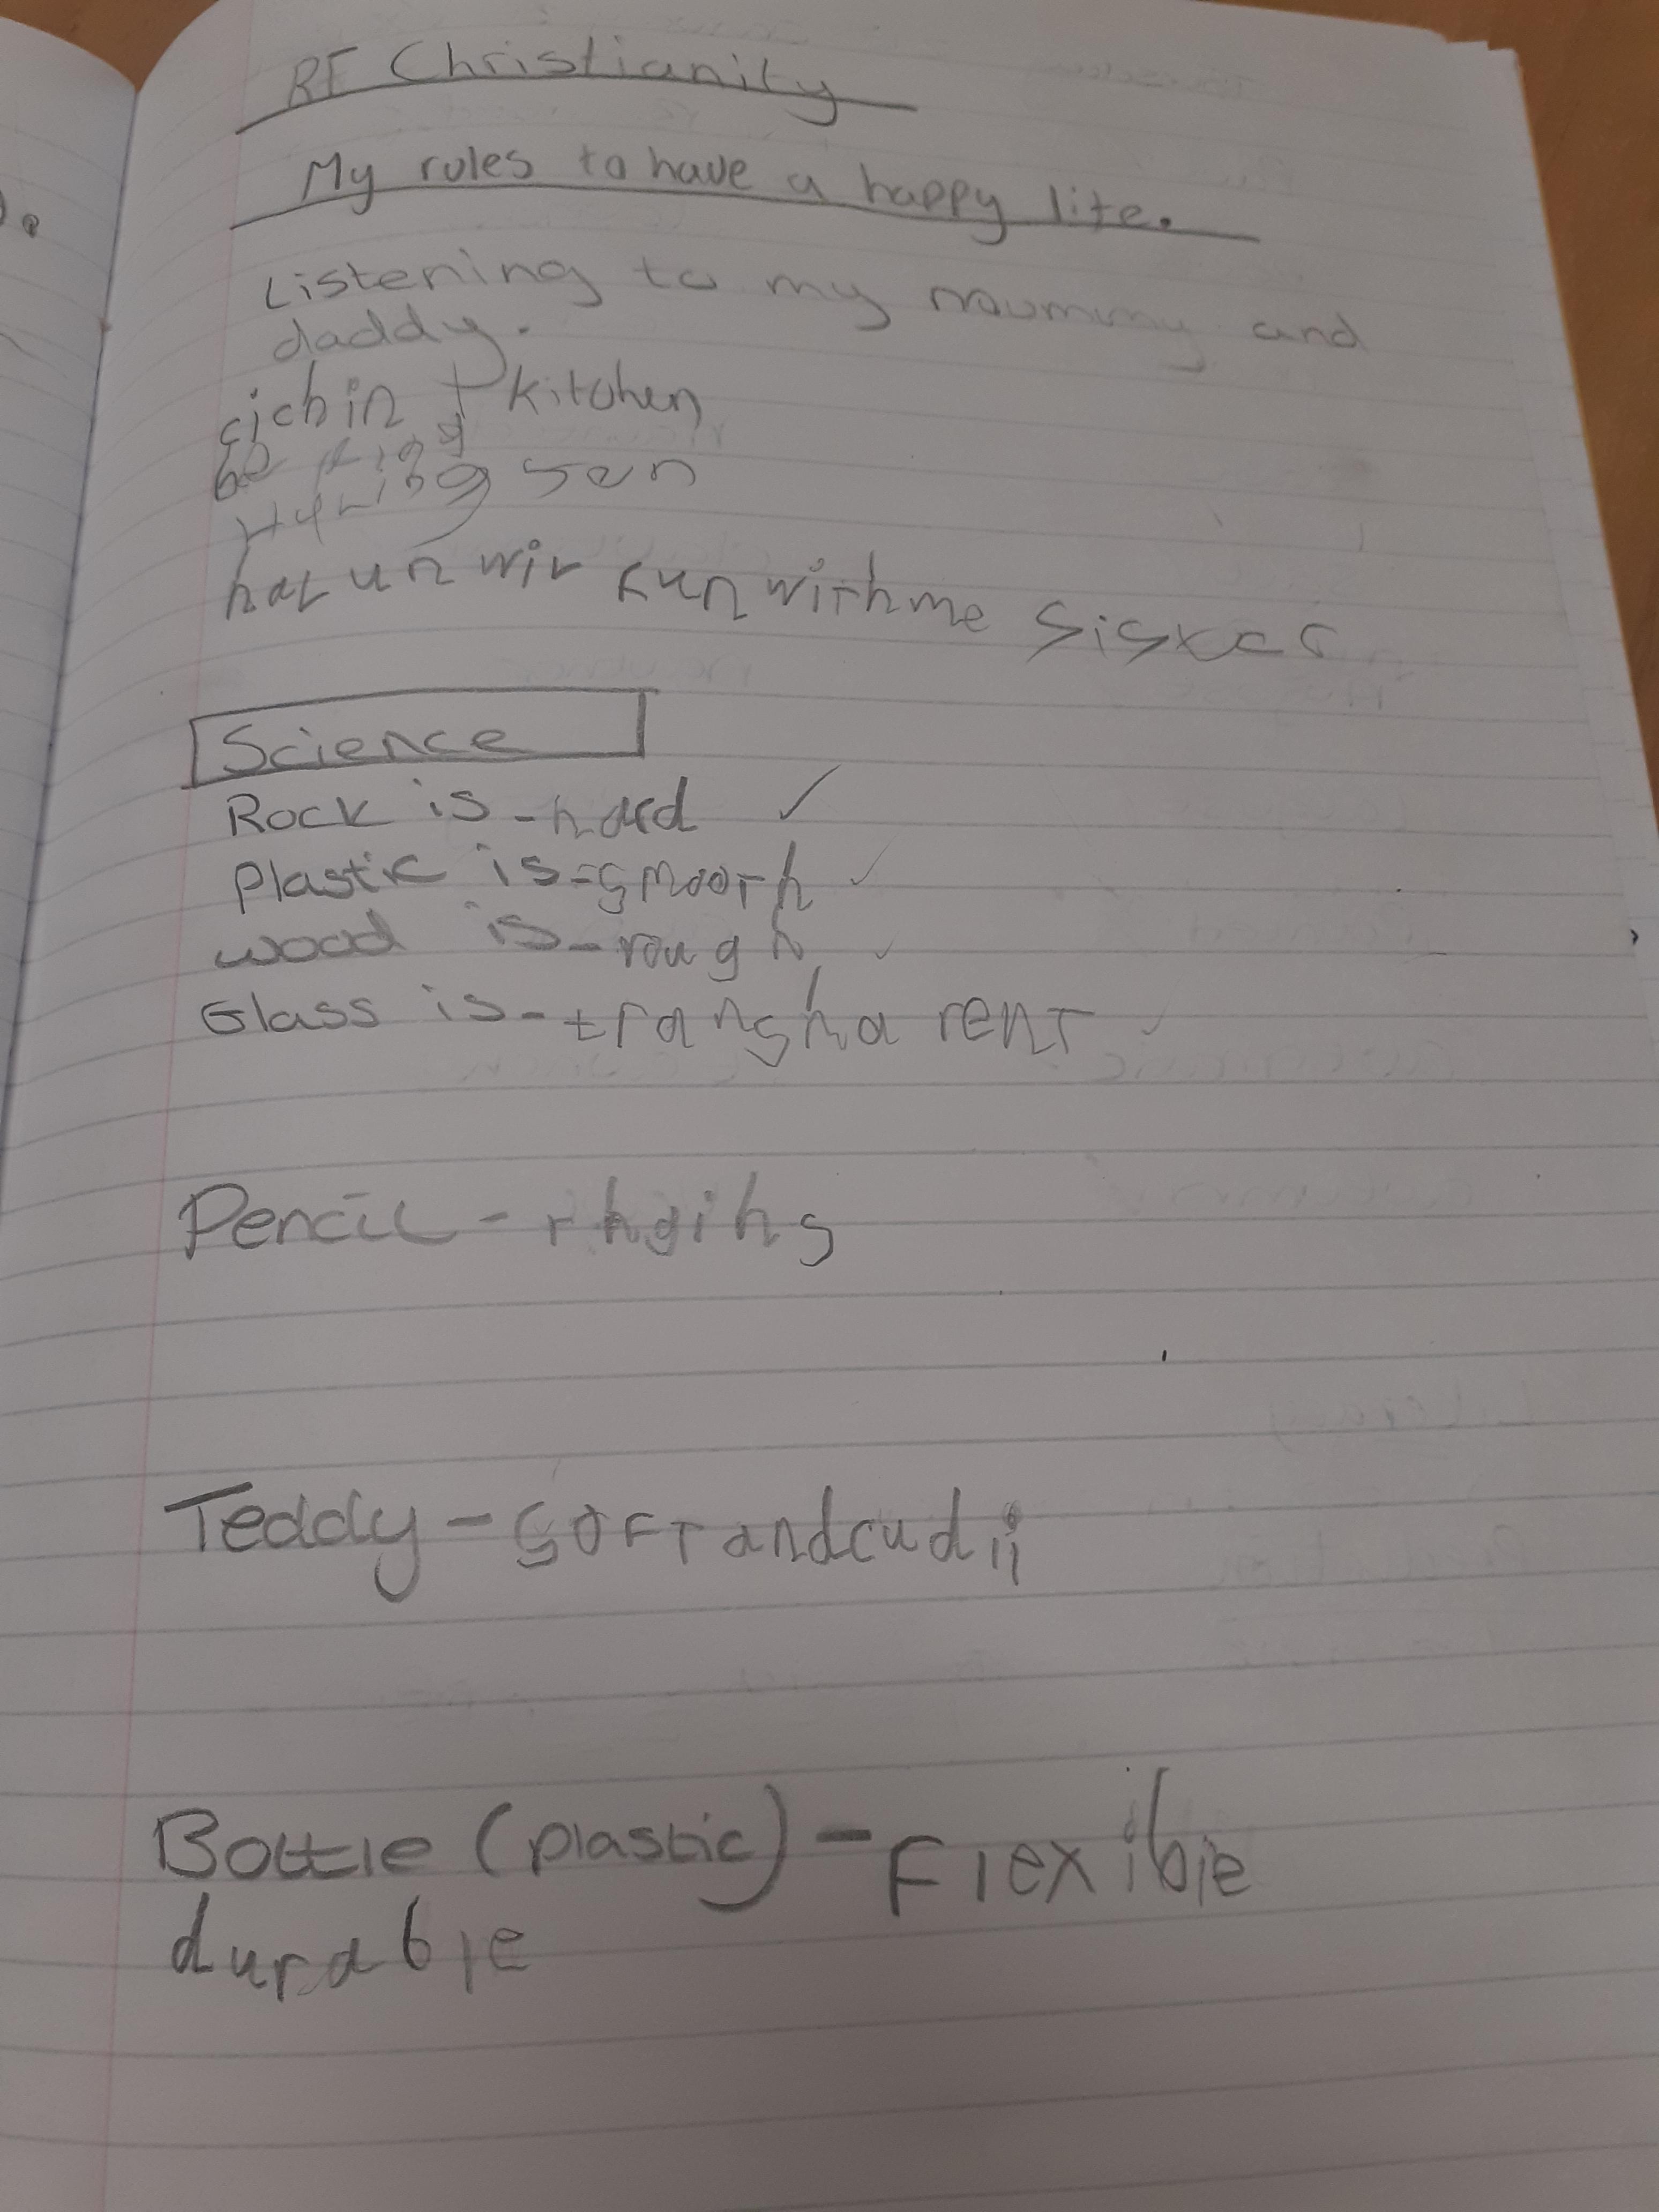 RE Christianity
My rules to have a happy life.
Listening to my mummy and
daddy.
kitchen
be
fun with me sister
Science
Rock is - hard
Plastic is - smooth
wood is - rough
Glass is - transharent
Pencil - rhgihs
Teddy - soft and cudii
Bottle (plastic) - Flexible
durable